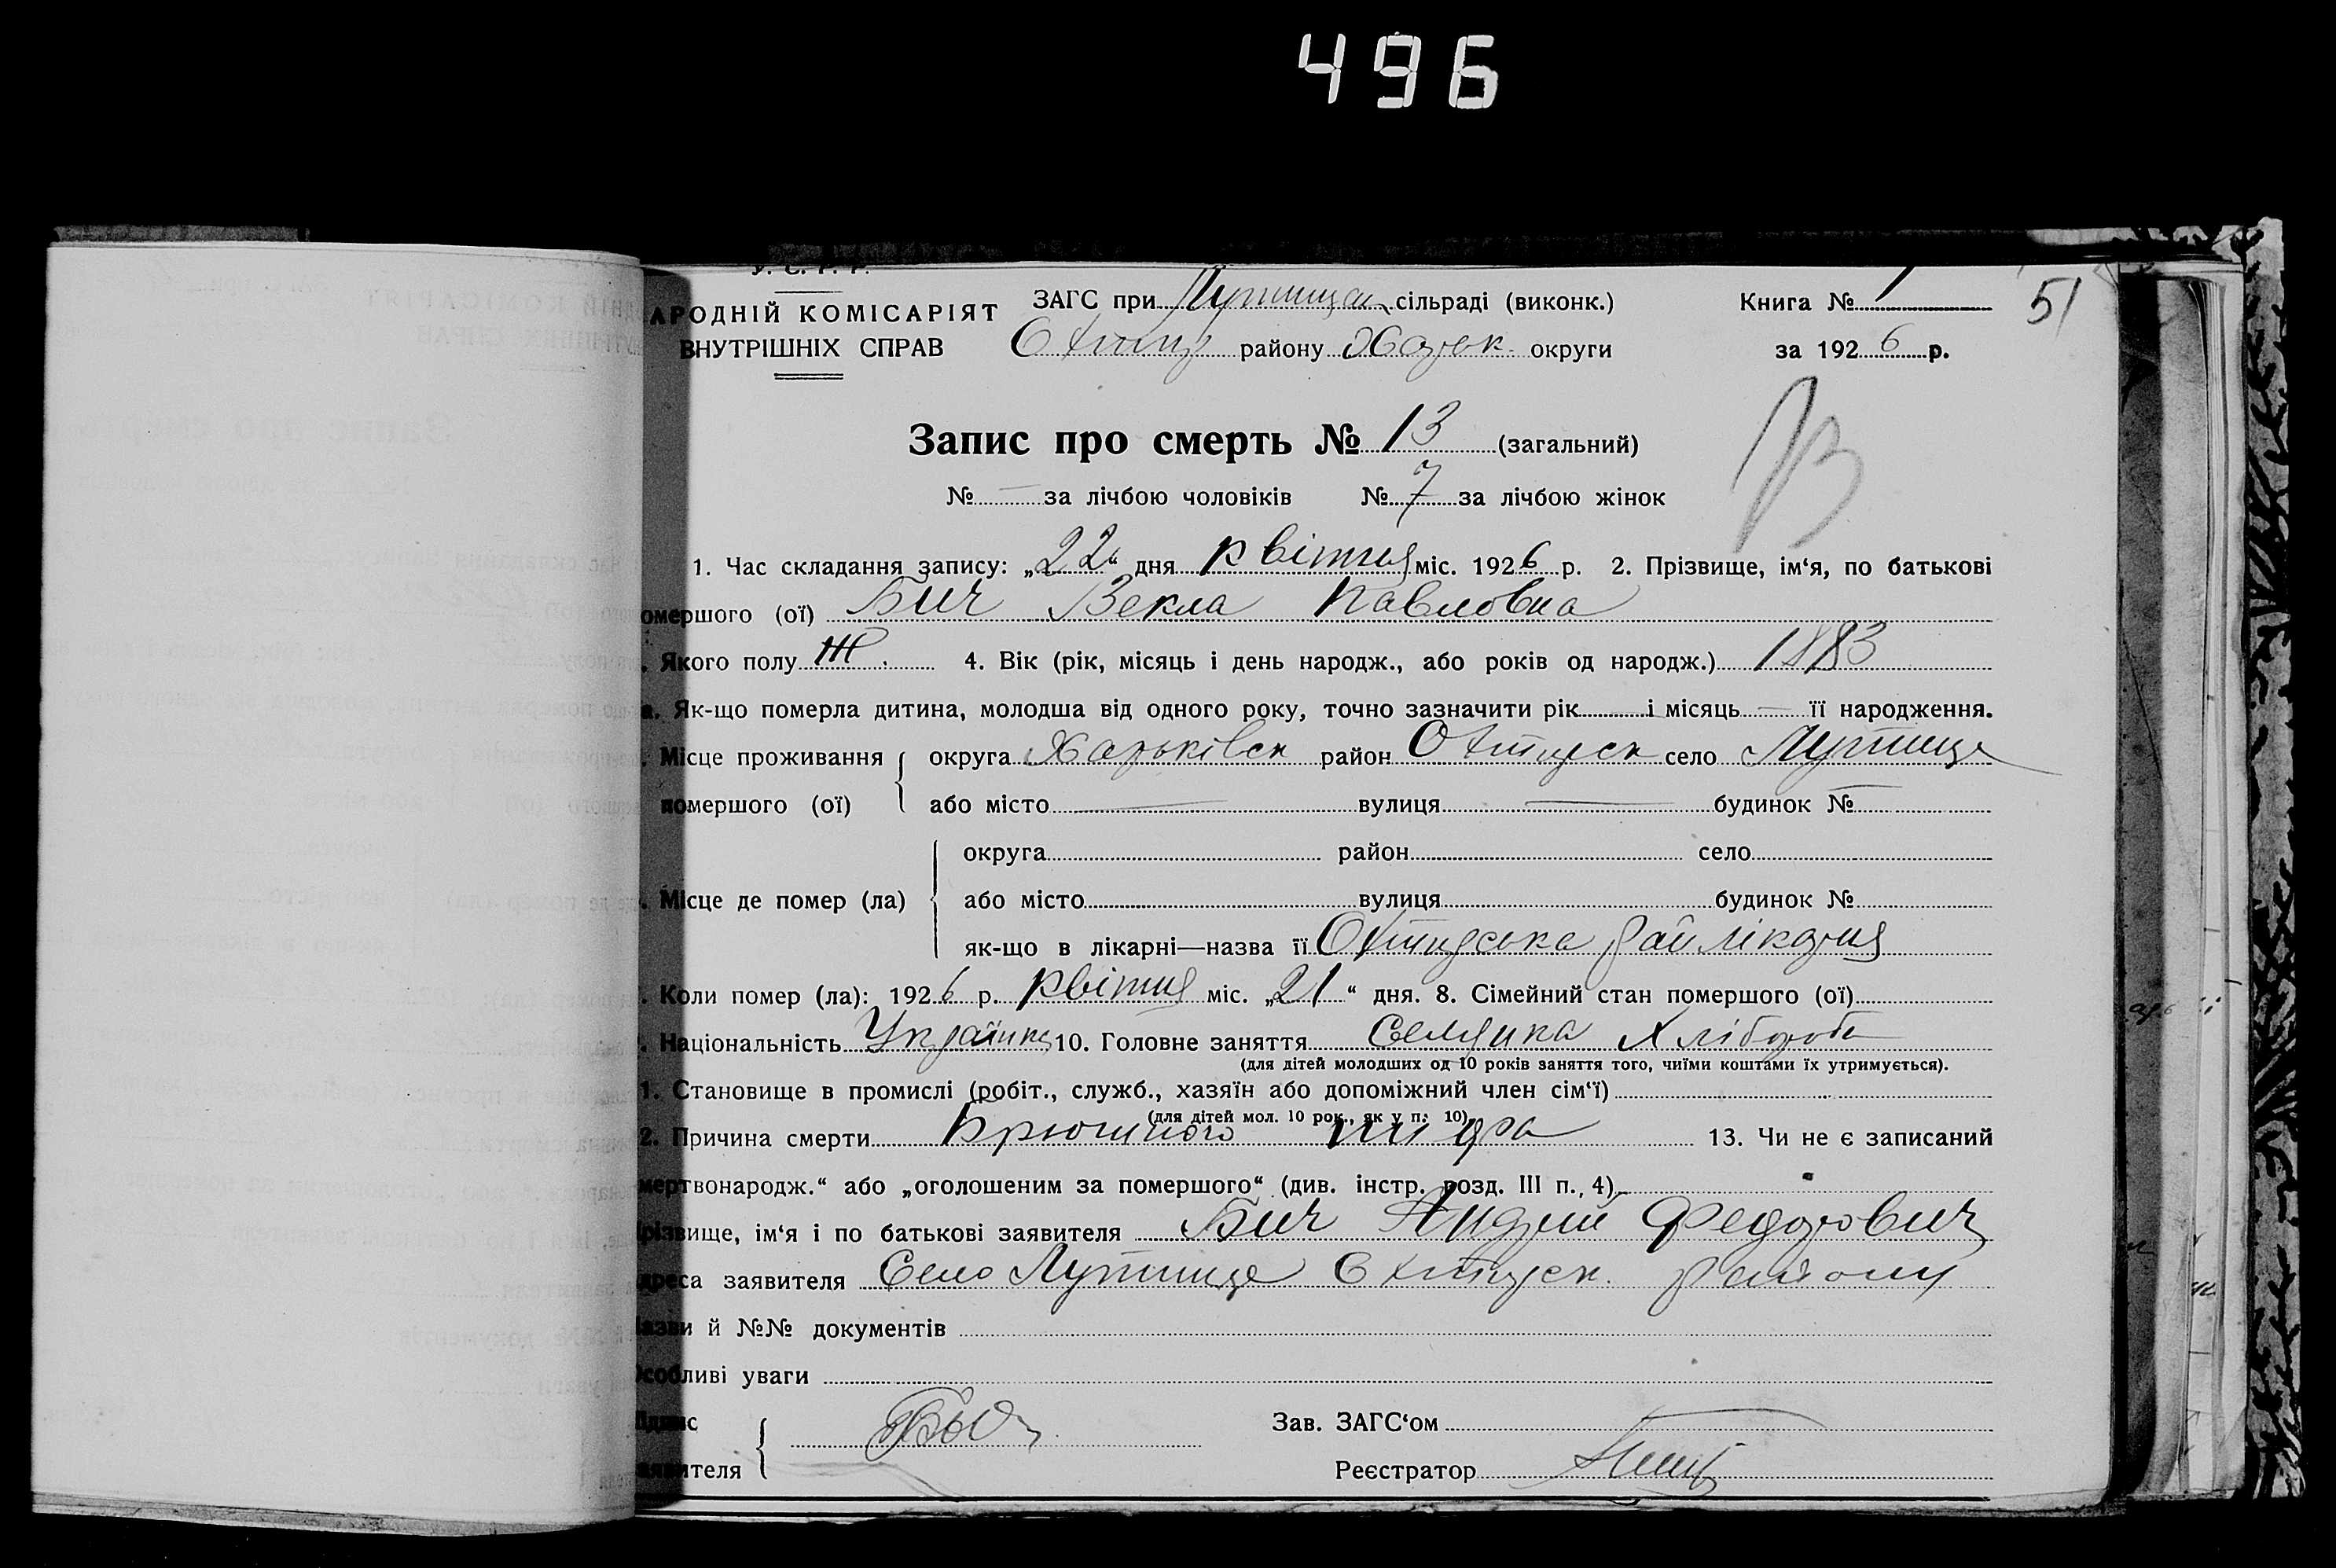 496
У. С. Р. Р.
АРОДНІЙ КОМІСАРІЯТ
ВНУТРІШНІХ СПРАВ
ЗАГС при сільраді (виконк.)
району Харьк. округи
Книга № 1
за 1926 р.
51
Запис про смерть № 13 (загальний)
№ — за лічбою чоловіків № 7 за лічбою жінок
1. Час складання запису: „22“ дня квітня міс. 1926 р. 2. Прізвище, ім‘я, по батькові
омершого (ої) Бич Векла Павловна
. Якого полу Ж. 4. Вік (рік, місяць і день народж., або років од народж.) 1883
а. Як-що померла дитина, молодша від одного року, точно зазначити рік і місяць — її народження.
. Місце проживання округа Харьківськ район Охтирск село Лутище
помершого (ої) або місто — вулиця — будинок № —
округа район село
. Місце де помер (ла) або місто вулиця будинок №
як-що в лікарні—назва її Охтирська райлікарня
. Коли помер (ла): 1926 р. квітня міс. „21“ дня. 8. Сімейний стан помершого (ої)
. Національність Українка 10. Головне заняття Селянка Хлібороб
(для дітей молодших од 10 років заняття того, чиїми коштами їх утримується).
1. Становище в промислі (робіт., служб., хазяїн або допоміжний член сім‘ї)
(для дітей мол. 10 рок., як у п. 10)
2. Причина смерти Брюшного тифа 13. Чи не є записаний
мертвонародж.“ або „оголошеним за помершого“ (див. інстр. розд. III п., 4)
різвище, ім‘я і по батькові заявителя Бич Андрій Федорович
дреса заявителя Село Лутище Охтирск. району
азви й №№ документів
Особливі уваги
Підпис
заявителя
Зав. ЗАГС‘ом
Реєстратор